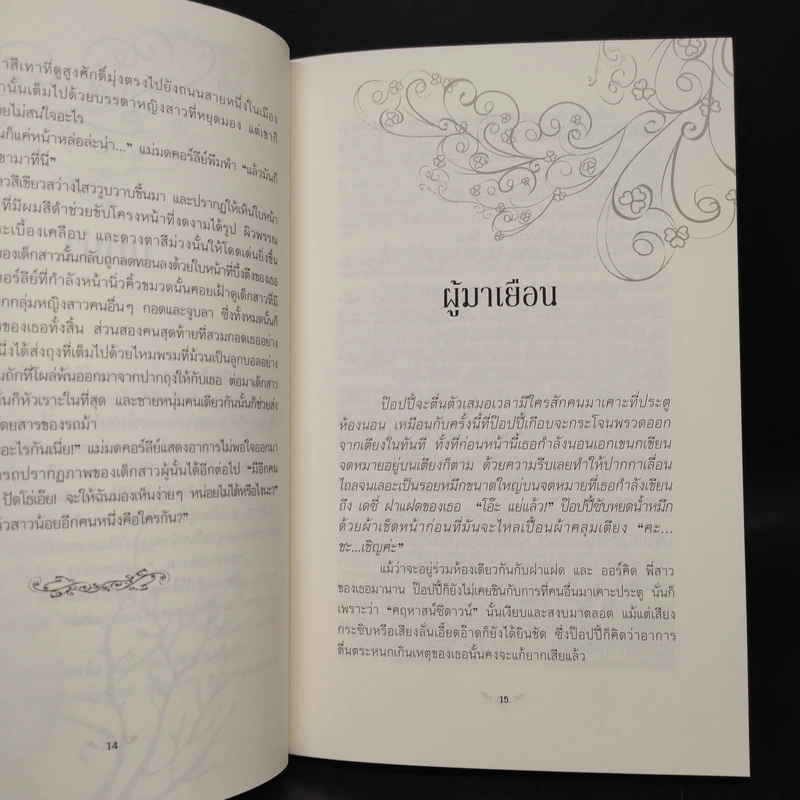 าสีเทาที่ดูสูงศักดิ์มุ่งตรงไปยังถนนสายหนึ่งในเมือง
านั้นเต็มไปด้วยบรรดาหญิงสาวที่หยุดมอง แต่เขาก็
ยไม่สนใจอะไร
นก็แค่หน้าหล่อล่ะน่า...” แม่มดคอร์ลีย์พึมพำ “แล้วมันก็
ขามาที่นี่”
ลวสีเขียวสว่างไสววูบวาบขึ้นมา และปรากฏให้เห็นใบหน้า
ที่มีผมสีดำช่วยขับโครงหน้าที่งดงามได้รูป ผิวพรรณ
ระเบื้องเคลือบ และดวงตาสีม่วงนั้นให้โดดเด่นยิ่งขึ้น
ของเด็กสาวนั้นกลับถูกลดทอนลงด้วยใบหน้าที่บึ้งตึงของเธอ
อร์ลีย์ที่กำลังหน้านิ่วคิ้วขมวดนั้นคอยเฝ้าดูเด็กสาวที่มี
ุกกลุ่มหญิงสาวคนอื่นๆ กอดและจูบลา ซึ่งทั้งหมดนั้นก็
งของเธอทั้งสิ้น ส่วนสองคนสุดท้ายที่สวมกอดเธออย่าง
นึ่งได้ส่งถุงที่เต็มไปด้วยไหมพรมที่ม้วนเป็นลูกบอลอย่าง
มถักที่โผล่พ้นออกมาจากปากถุงให้กับเธอ ต่อมาเด็กสาว
นั้นก็หัวเราะในที่สุด และชายหนุ่มคนเดียวกันนั้นก็ช่วยส่ง
ดยสารของรถม้า
อะไรกันเนี่ย!” แม่มดคอร์ลีย์แสดงอาการไม่พอใจออกมา
ารถปรากฏภาพของเด็กสาวผู้นั้นได้อีกต่อไป “มีอีกคน
ปัดโธ่เอ๊ย! จะให้ฉันมองเห็นง่ายๆ หน่อยไม่ได้หรือไงนะ?
ล้วสาวน้อยอีกคนหนึ่งคือใครกัน?”
14
ผู้มาเยือน
ป๊อปปี้จะตื่นตัวเสมอเวลามีใครสักคนมาเคาะที่ประตู
ห้องนอน เหมือนกับครั้งนี้ที่ป๊อปปี้เกือบจะกระโจนพรวดออก
จากเตียงในทันที ทั้งที่ก่อนหน้านี้เธอกำลังนอนเอกเขนกเขียน
จดหมายอยู่บนเตียงก็ตาม ด้วยความรีบเลยทำให้ปากกาเลื่อน
ไถลจนเลอะเป็นรอยหมึกขนาดใหญ่บนจดหมายที่เธอกำลังเขียน
ถึง เดซี่ ฝาแฝดของเธอ “โอ๊ะ แย่แล้ว!” ป๊อปปี้ซับหยดน้ำหมึก
ด้วยผ้าเช็ดหน้าก่อนที่มันจะไหลเปื้อนผ้าคลุมเตียง “คะ...
ชะ...เชิญค่ะ”
แม้ว่าจะอยู่ร่วมห้องเดียวกันกับฝาแฝด และ ออร์คิด พี่สาว
ของเธอมานาน ป๊อปปี้ก็ยังไม่เคยชินกับการที่คนอื่นมาเคาะประตู นั่นก็
เพราะว่า “คฤหาสน์ซีดาวน์” นั้นเงียบและสงบมาตลอด แม้แต่เสียง
กระซิบหรือเสียงลั่นเอี้ยดอ๊าดก็ยังได้ยินชัด ซึ่งป๊อปปี้ก็คิดว่าอาการ
ตื่นตระหนกเกินเหตุของเธอนั้นคงจะแก้ยากเสียแล้ว
15